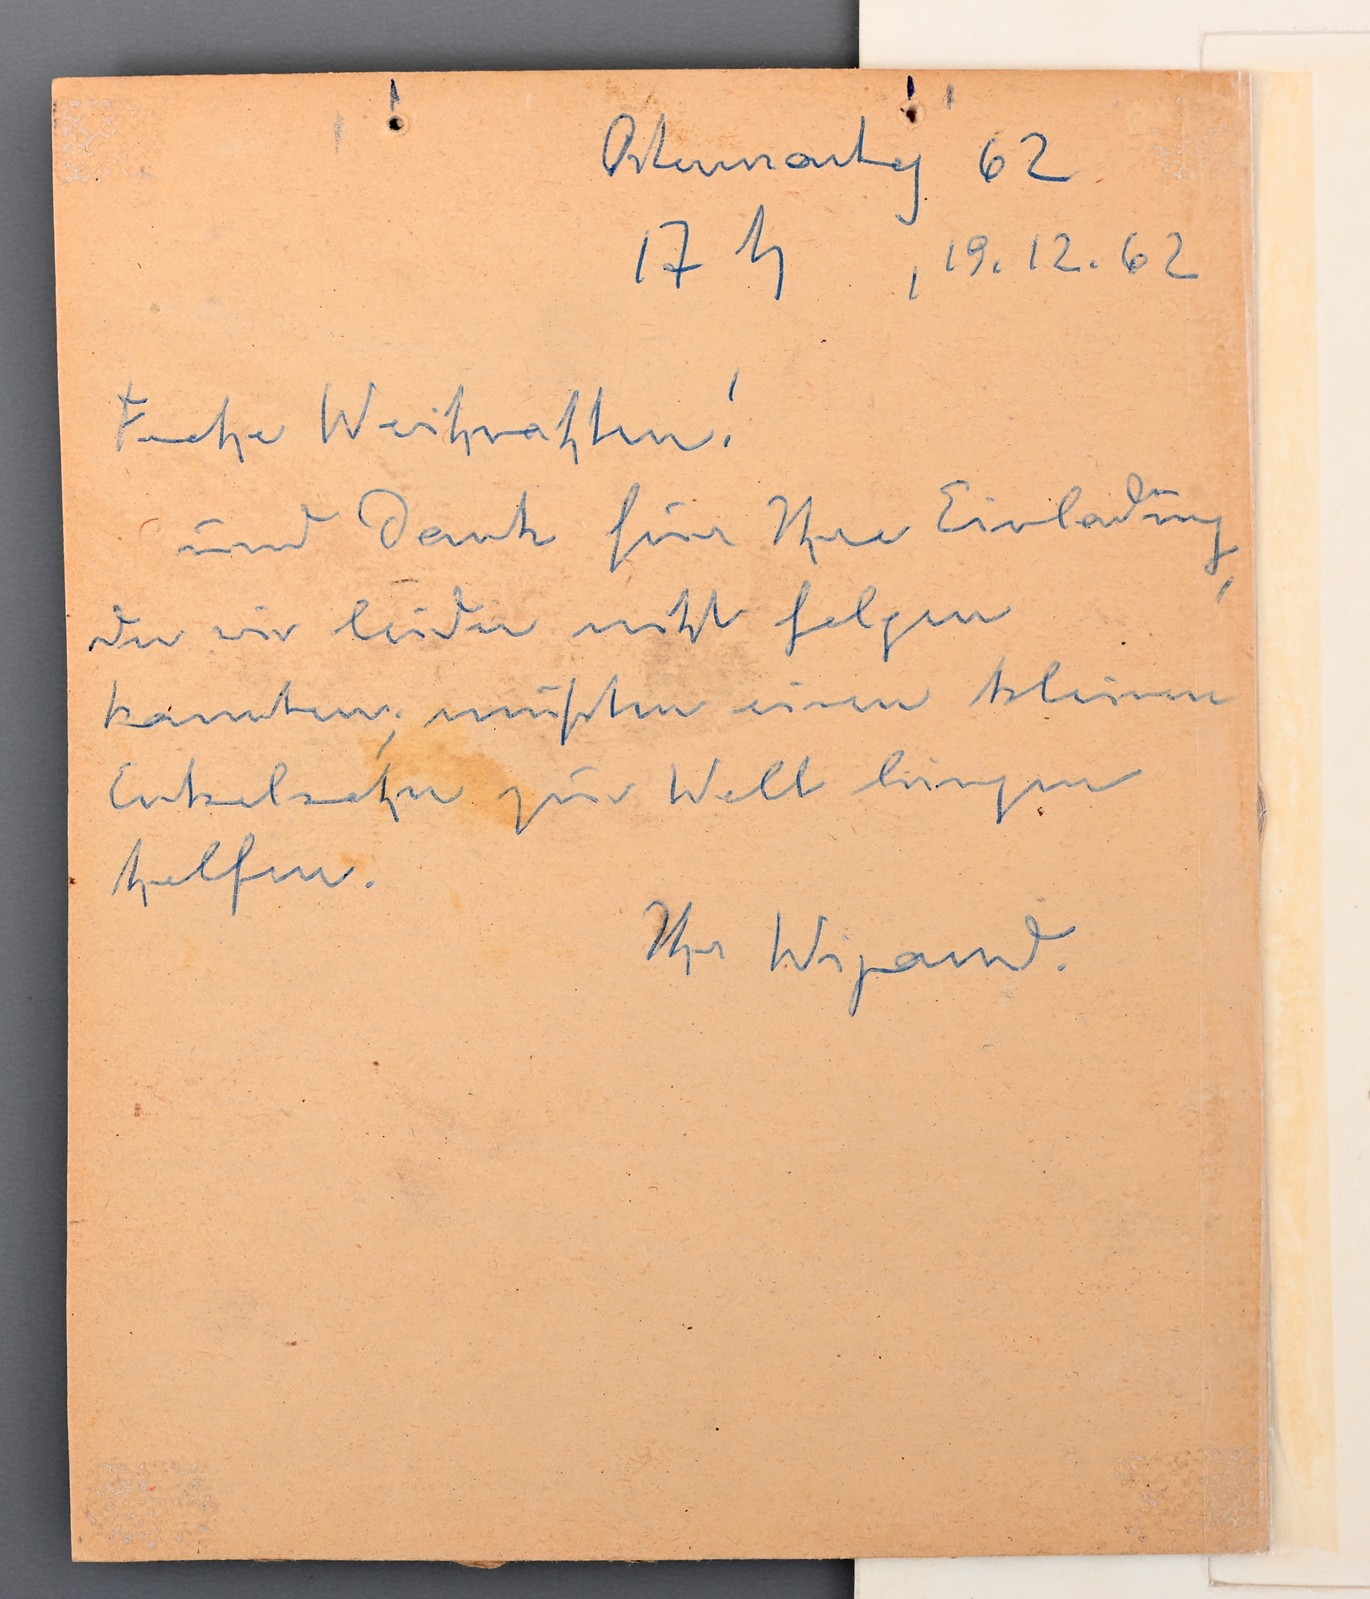 Ostermontag 62
17 h , 19.12.62
Frohe Weihnachten!
und Dank für Ihre Einladung,
der wir leider nicht folgen
konnten; mußten einen kleinen
Enkelsohn zur Welt bringen
helfen.
Ihr Wigand.